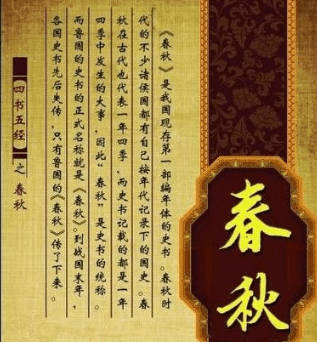 春秋
《春秋》是我国现存第一部编年体的史书。春秋时
代的不少诸侯国都有自己按年代记录下的国史。春
秋在古代也代表一年四季，而史书记载的都是一年
四季中发生的大事，因此“春秋”是史书的统称。
而鲁国的史书的正式名称就是《春秋》。到战国末年，
各国史书先后失传，只有鲁国的《春秋》传了下来。
四书五经之春秋